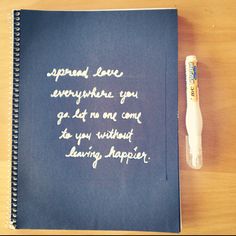 spread love
everywhere you
go. let no one come
to you without
leaving happier.